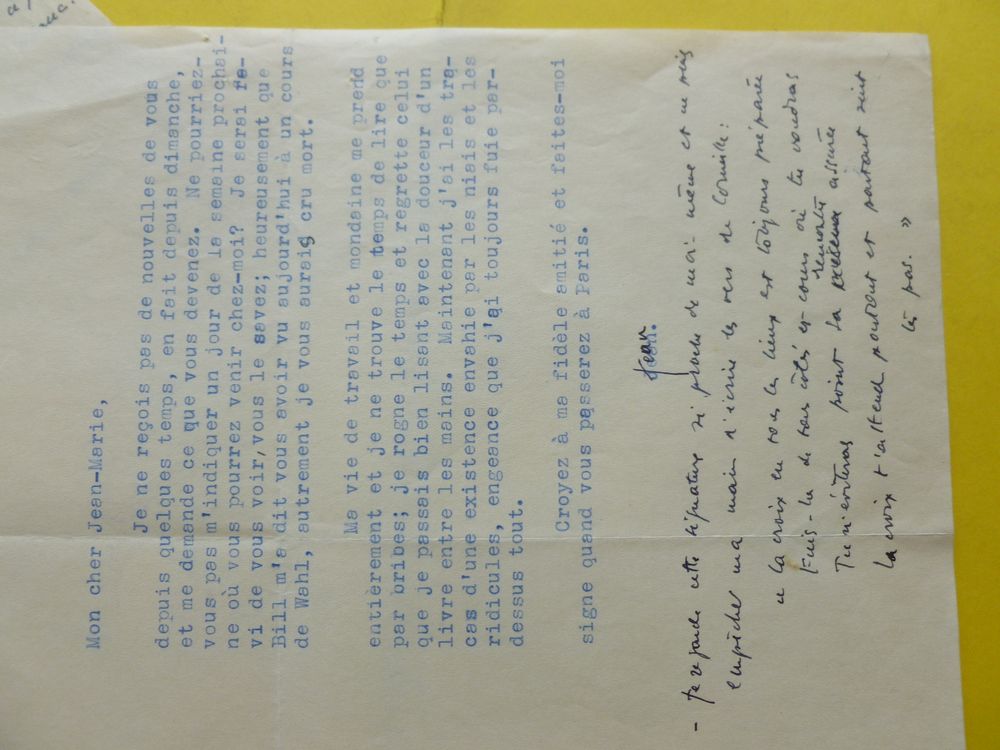 Mon cher Jean-Marie,
Je ne reçois pas de nouvelles de vous
depuis quelques temps, en fait depuis dimanche,
et me demande ce que vous devenez. Ne pourriez-
vous pas m'indiquer un jour de la semaine prochai-
ne où vous pourrez venir chez-moi? Je serai ra-
vi de vous voir, vous le savez; heureusement que
Bill m'a dit vous avoir vu aujourd'hui à un cours
de Wahl, autrement je vous aurais cru mort.
Ma vie de travail et mondaine me prend
entièrement et je ne trouve le temps de lire que
par bribes; je rogne le temps et regrette celui
que je passais bien lisant avec la douceur d'un
livre entre les mains. Maintenant j'ai les tra-
cas d'une existence envahie par les niais et les
ridicules, engeance que j'ai toujours fuie par-
dessus tout.
Croyez à ma fidèle amitié et faites-moi
signe quand vous passerez à Paris.
Jean.
- Je regarde cette signature si proche de moi-même et ne puis
empêcher ma main d'écrire les vers de Corneille:
« la croix en tous les lieux est toujours préparée
Fuis-la de tous côtés et cours où tu voudras
Tu n'éviteras point sa rencontre assurée
La croix t'attend partout et partout suit
tes pas. »